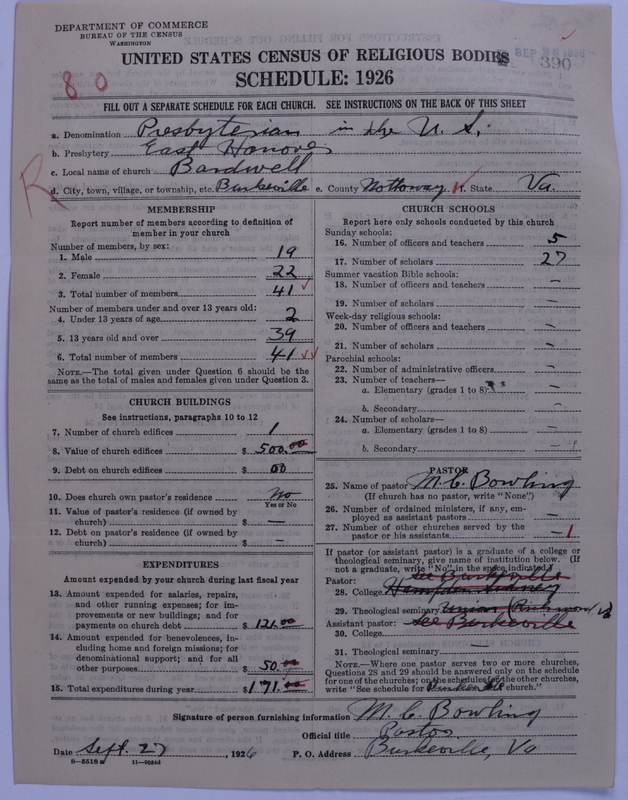 DEPARTMENT OF COMMERCE
BUREAU OF THE CENSUS
WASHINGTON
UNITED STATES CENSUS OF RELIGIOUS BODIES
SCHEDULE: 1926
390
80
FILL OUT A SEPARATE SCHEDULE FOR EACH CHURCH. SEE INSTRUCTIONS ON THE BACK OF THIS SHEET
a. Denomination Presbyterian in the U. S.
b. Presbytery East Hanover
c. Local name of church Bardwell
R
d. City, town, village, or township, etc. Burkeville e. County Nottoway f. State Va.
MEMBERSHIP
Report number of members according to definition of
member in your church
Number of members, by sex:
1. Male 19
2. Female 22
3. Total number of members 41
Number of members under and over 13 years old:
4. Under 13 years of age 2
5. 13 years old and over 39
6. Total number of members 41
NOTE.—The total given under Question 6 should be the
same as the total of males and females given under Question 3.
CHURCH BUILDINGS
See instructions, paragraphs 10 to 12
7. Number of church edifices 1
8. Value of church edifices $ 500.00
9. Debt on church edifices $ 00
10. Does church own pastor's residence No
Yes or No
11. Value of pastor's residence (if owned by
church) $ —
12. Debt on pastor's residence (if owned by
church) $ —
EXPENDITURES
Amount expended by your church during last fiscal year
13. Amount expended for salaries, repairs,
and other running expenses; for im-
provements or new buildings; and for
payments on church debt $ 121.00
14. Amount expended for benevolences, in-
cluding home and foreign missions; for
denominational support; and for all
other purposes $ 50.00
15. Total expenditures during year $ 171.00
CHURCH SCHOOLS
Report here only schools conducted by this church
Sunday schools:
16. Number of officers and teachers 5
17. Number of scholars 27
Summer vacation Bible schools:
18. Number of officers and teachers —
19. Number of scholars —
Week-day religious schools:
20. Number of officers and teachers —
21. Number of scholars —
Parochial schools:
22. Number of administrative officers —
23. Number of teachers—
a. Elementary (grades 1 to 8) —
b. Secondary —
24. Number of scholars—
a. Elementary (grades 1 to 8) —
b. Secondary —
PASTOR
25. Name of pastor M. C. Bowling
(If church has no pastor, write "None")
26. Number of ordained ministers, if any, em-
ployed as assistant pastors —
27. Number of other churches served by the
pastor or his assistants —1
If pastor (or assistant pastor) is a graduate of a college or
theological seminary, give name of institution below. (If
not a graduate, write "No" in the space indicated.)
Pastor: see Burkeville
28. College Hampden Sidney
29. Theological seminary Union Richmond Va
Assistant pastor: see Burkeville
30. College
31. Theological seminary —
NOTE.—Where one pastor serves two or more churches,
Questions 28 and 29 should be answered only on the schedule
for one of the churches; on the schedules for the other churches,
write "See schedule for Burkeville church."
Signature of person furnishing information M. C. Bowling
Official title Pastor
Date Sept. 27, 1926 P. O. Address Burkeville, Va
8-5518a 11-9034d